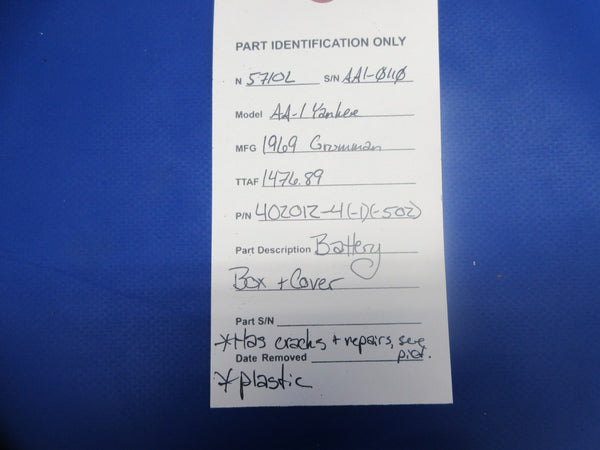 PART IDENTIFICATION ONLY
N 5710L S/N AA1-0110
Model AA-1 Yankee
MFG 1969 Grumman
TTAF 1476.89
P/N 402012-4(-1)(-502)
Part Description Battery
Box + Cover
Part S/N
*Has cracks + repairs, see
Date Removed pics.
*plastic